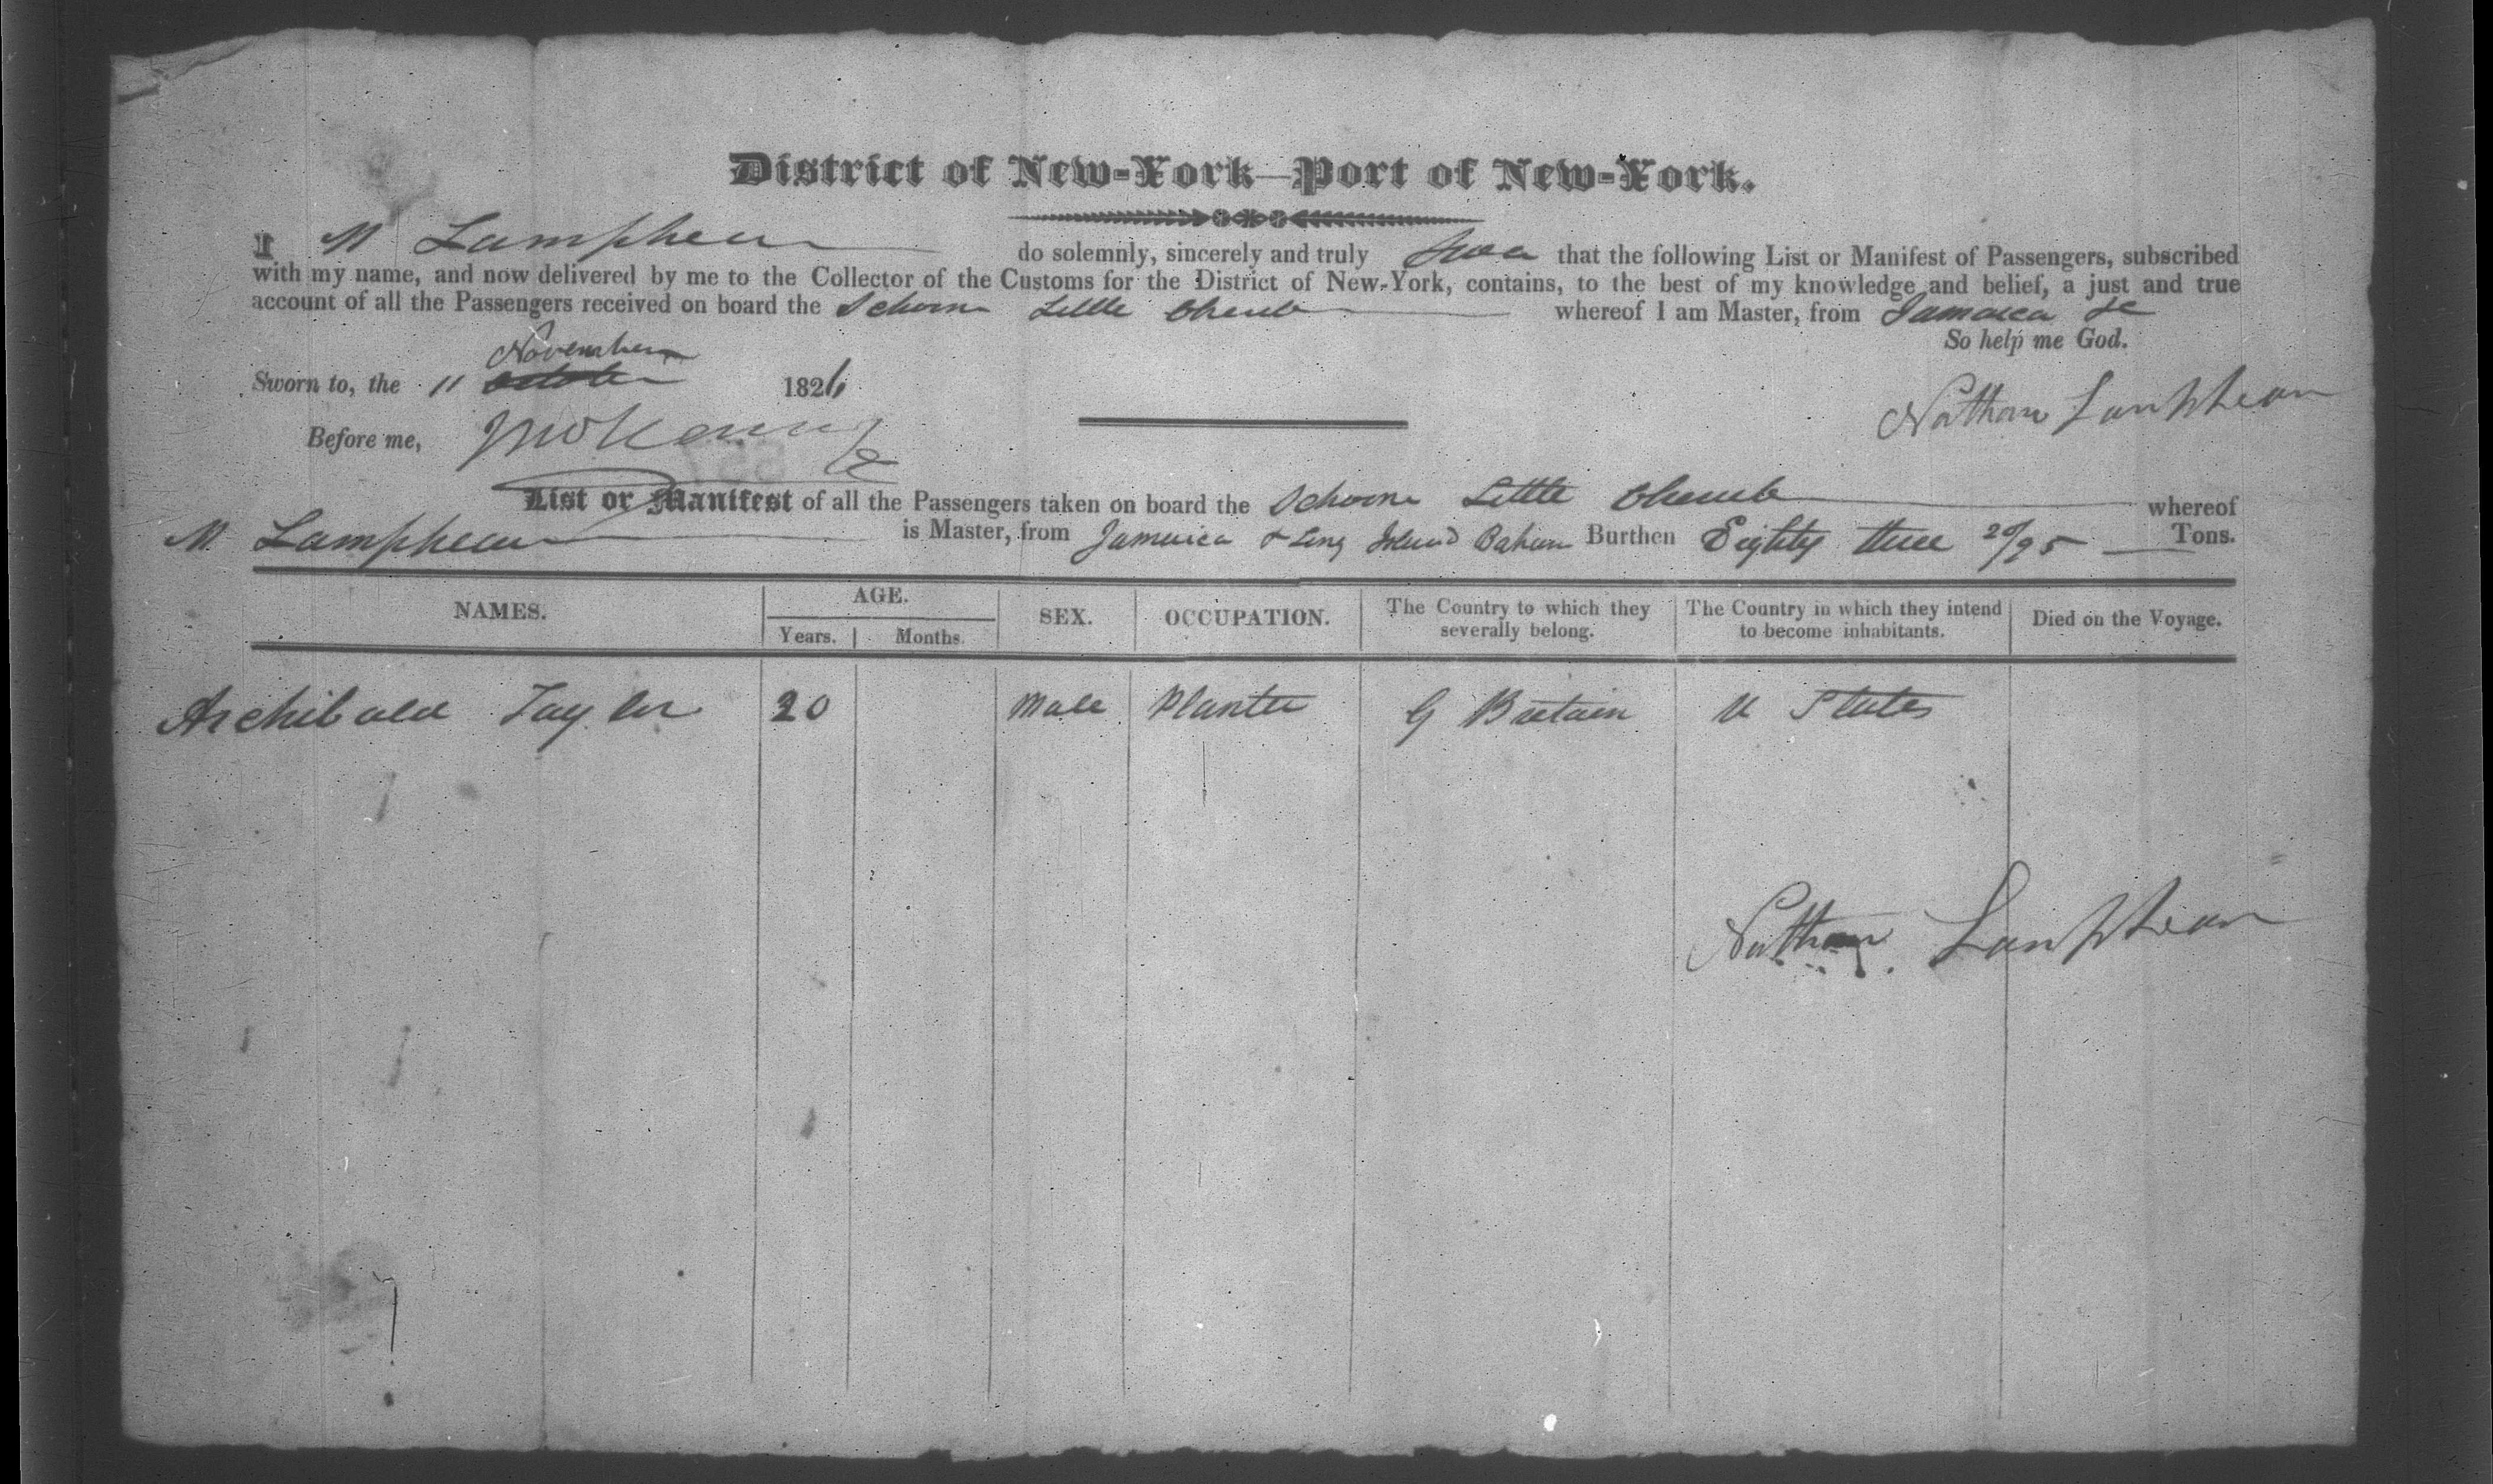 District of New-York—Port of New-York.
I N Lamphear do solemnly, sincerely and truly Swear that the following List or Manifest of Passengers, subscribed
with my name, and now delivered by me to the Collector of the Customs for the District of New-York, contains, to the best of my knowledge and belief, a just and true
account of all the Passengers received on board the Schoone Little Cherub whereof I am Master, from Jamaica &c
So help me God.
November
Sworn to, the 11 October 1826
Nathan Lanphear
Before me,
List or Manifest of all the Passengers taken on board the Schoone Little Cherub whereof
N Lamphear is Master, from Jamaica & Long Island Baham Burthen Eighty three 20/95 Tons.
NAMES. AGE. SEX. OCCUPATION. The Country to which they severally belong. The Country in which they intend to become inhabitants. Died on the Voyage.
Years. Months.
Archibald Taylor 20 Male Planter G Britain U States
Nathan Lanphear